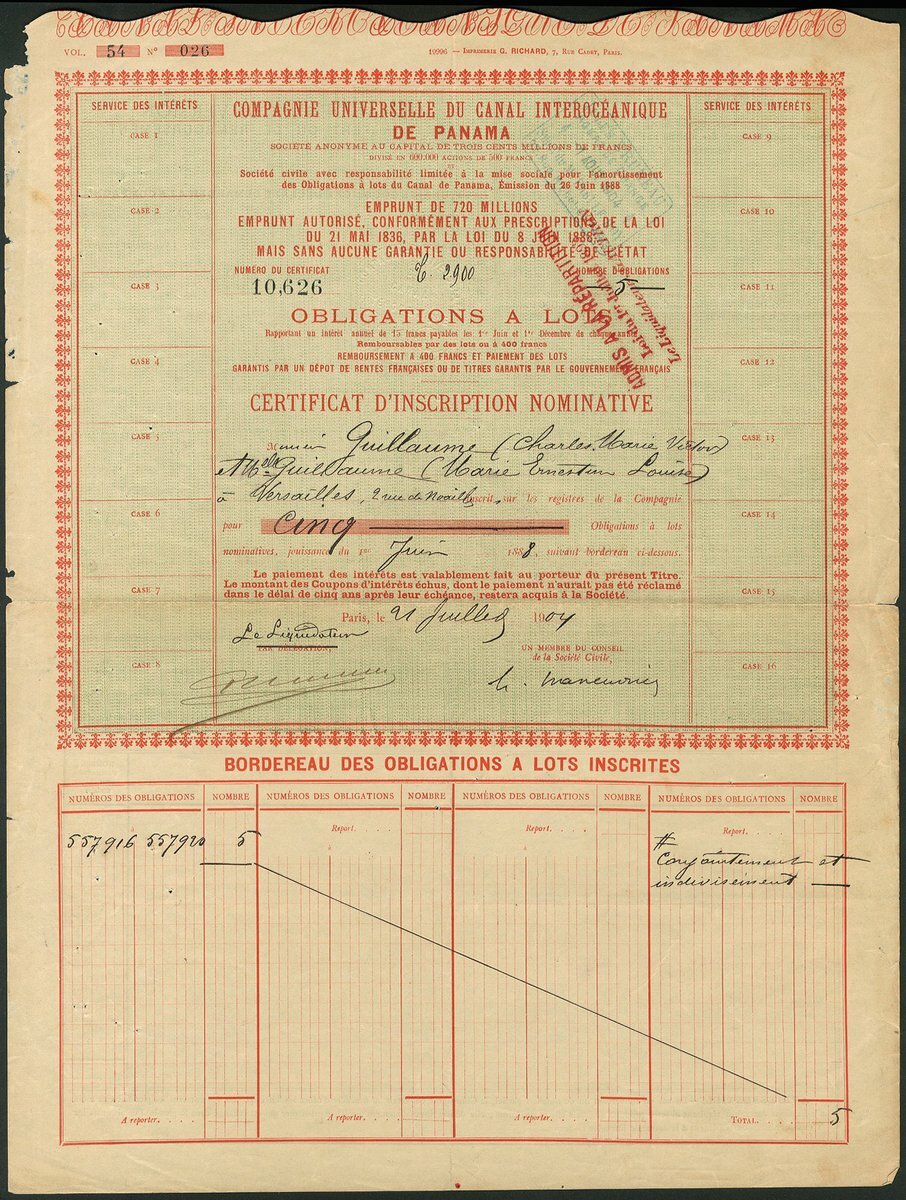 VOL. 54 N° 026
19996 — IMPRIMERIE G. RICHARD, 7, RUE CADET, PARIS.
SERVICE DES INTÉRÊTS
CASE 1
CASE 2
CASE 3
CASE 4
CASE 5
CASE 6
CASE 7
CASE 8
COMPAGNIE UNIVERSELLE DU CANAL INTEROCÉANIQUE
DE PANAMA
SOCIÉTÉ ANONYME AU CAPITAL DE TROIS CENTS MILLIONS DE FRANCS
DIVISÉ EN 600.000 ACTIONS DE 500 FRANCS
ET
Société civile avec responsabilité limitée à la mise sociale pour l'amortissement
des Obligations à lots du Canal de Panama, Émission du 26 Juin 1888
EMPRUNT DE 720 MILLIONS
EMPRUNT AUTORISÉ, CONFORMÉMENT AUX PRESCRIPTIONS DE LA LOI
DU 21 MAI 1836, PAR LA LOI DU 8 JUIN 1888
MAIS SANS AUCUNE GARANTIE OU RESPONSABILITÉ DE L'ÉTAT
NUMÉRO DU CERTIFICAT
10,626
T. 2.900
NOMBRE D'OBLIGATIONS
5
ADMIS A LA RÉPARTITION
Le Liquidateur
OBLIGATIONS A LOTS
Rapportant un intérêt annuel de 15 francs payables les 1er Juin et 1er Décembre de chaque année
Remboursables par des lots ou à 400 francs
REMBOURSEMENT A 400 FRANCS ET PAIEMENT DES LOTS
GARANTIS PAR UN DÉPOT DE RENTES FRANÇAISES OU DE TITRES GARANTIS PAR LE GOUVERNEMENT FRANÇAIS
CERTIFICAT D'INSCRIPTION NOMINATIVE
Monsieur Guillaume (Charles Marie Victor)
et Mlle Guillaume (Marie Ernestine Louise)
à Versailles, 2 rue de Noailles, inscrit sur les registres de la Compagnie
pour cinq Obligations à lots
nominatives, jouissance du 1er Juin 1888, suivant bordereau ci-dessous.
Le paiement des intérêts est valablement fait au porteur du présent Titre.
Le montant des Coupons d'intérêts échus, dont le paiement n'aurait pas été réclamé
dans le délai de cinq ans après leur échéance, restera acquis à la Société.
Paris, le 21 Juillet 1904
Le Liquidateur
PAR DÉLÉGATION
UN MEMBRE DU CONSEIL
de la Société Civile,
SERVICE DES INTÉRÊTS
CASE 9
CASE 10
CASE 11
CASE 12
CASE 13
CASE 14
CASE 15
CASE 16
BORDEREAU DES OBLIGATIONS A LOTS INSCRITES
NUMÉROS DES OBLIGATIONS NOMBRE NUMÉROS DES OBLIGATIONS NOMBRE NUMÉROS DES OBLIGATIONS NOMBRE NUMÉROS DES OBLIGATIONS NOMBRE
Report. . . . Report. . . . Report. . . .
557916 à 557920 5
Conjointement et
indivisément
A reporter. . . . A reporter. . . . A reporter. . . . TOTAL. . . . 5